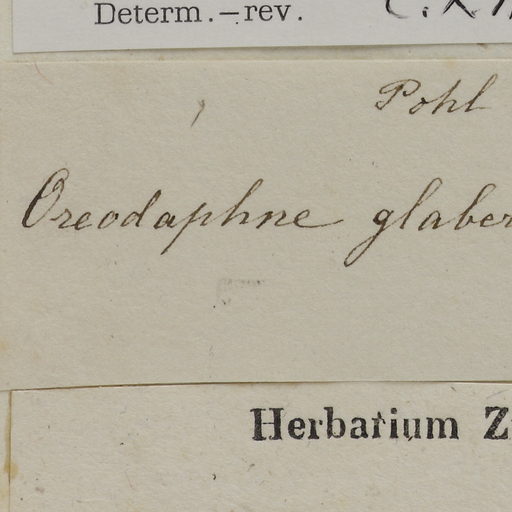 Determ.—rev.
Pohl
Oreodaphne glaber
Herbarium Z